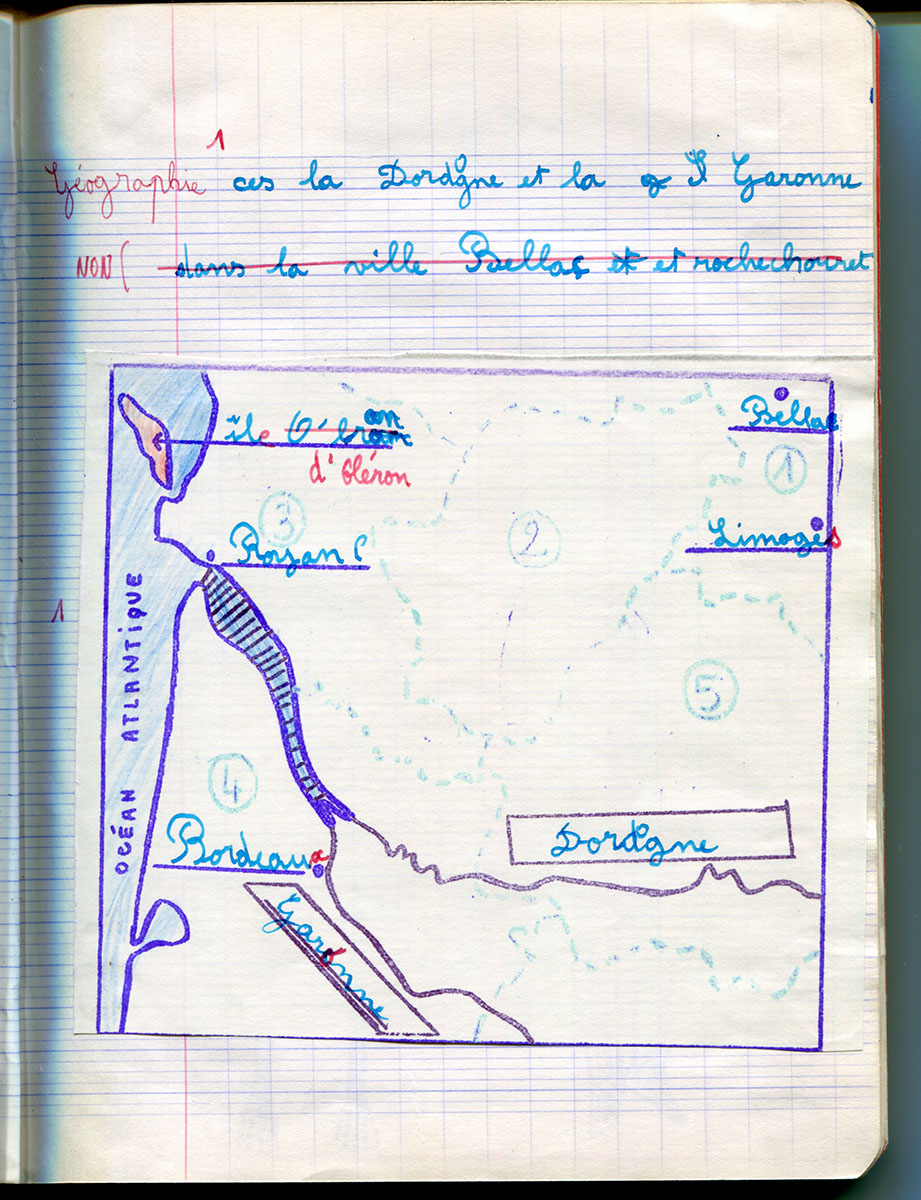 1
Géographie ces la Dordogne et la Garonne
NON( dans la ville Bellac et et rochechouret
Bellac
île O'
an
d'Oléron
1
3
2
Royan
Limoges
OCÉAN ATLANTIQUE
1
5
4
Dordogne
Bordeaux
Garonne